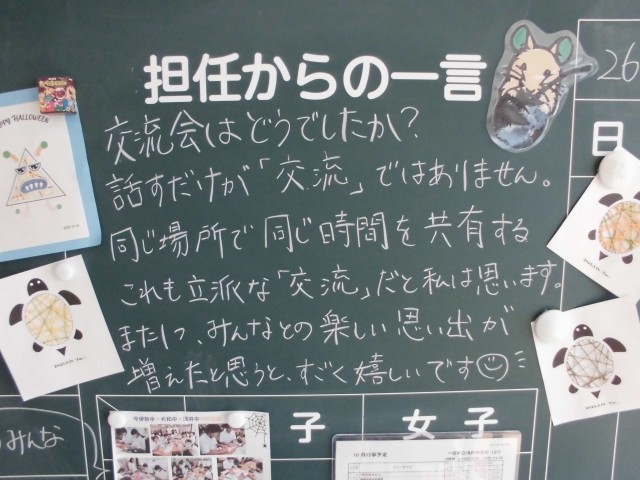 担任からの一言
26
日
HAPPY HALLOWEEN
交流会はどうでしたか?
話すだけが「交流」ではありません。
同じ場所で同じ時間を共有する
これも立派な「交流」だと私は思います。
また1つ、みんなとの楽しい思い出が
増えたと思うと、すごく嬉しいです
みんな
子
女子
10月行事予定